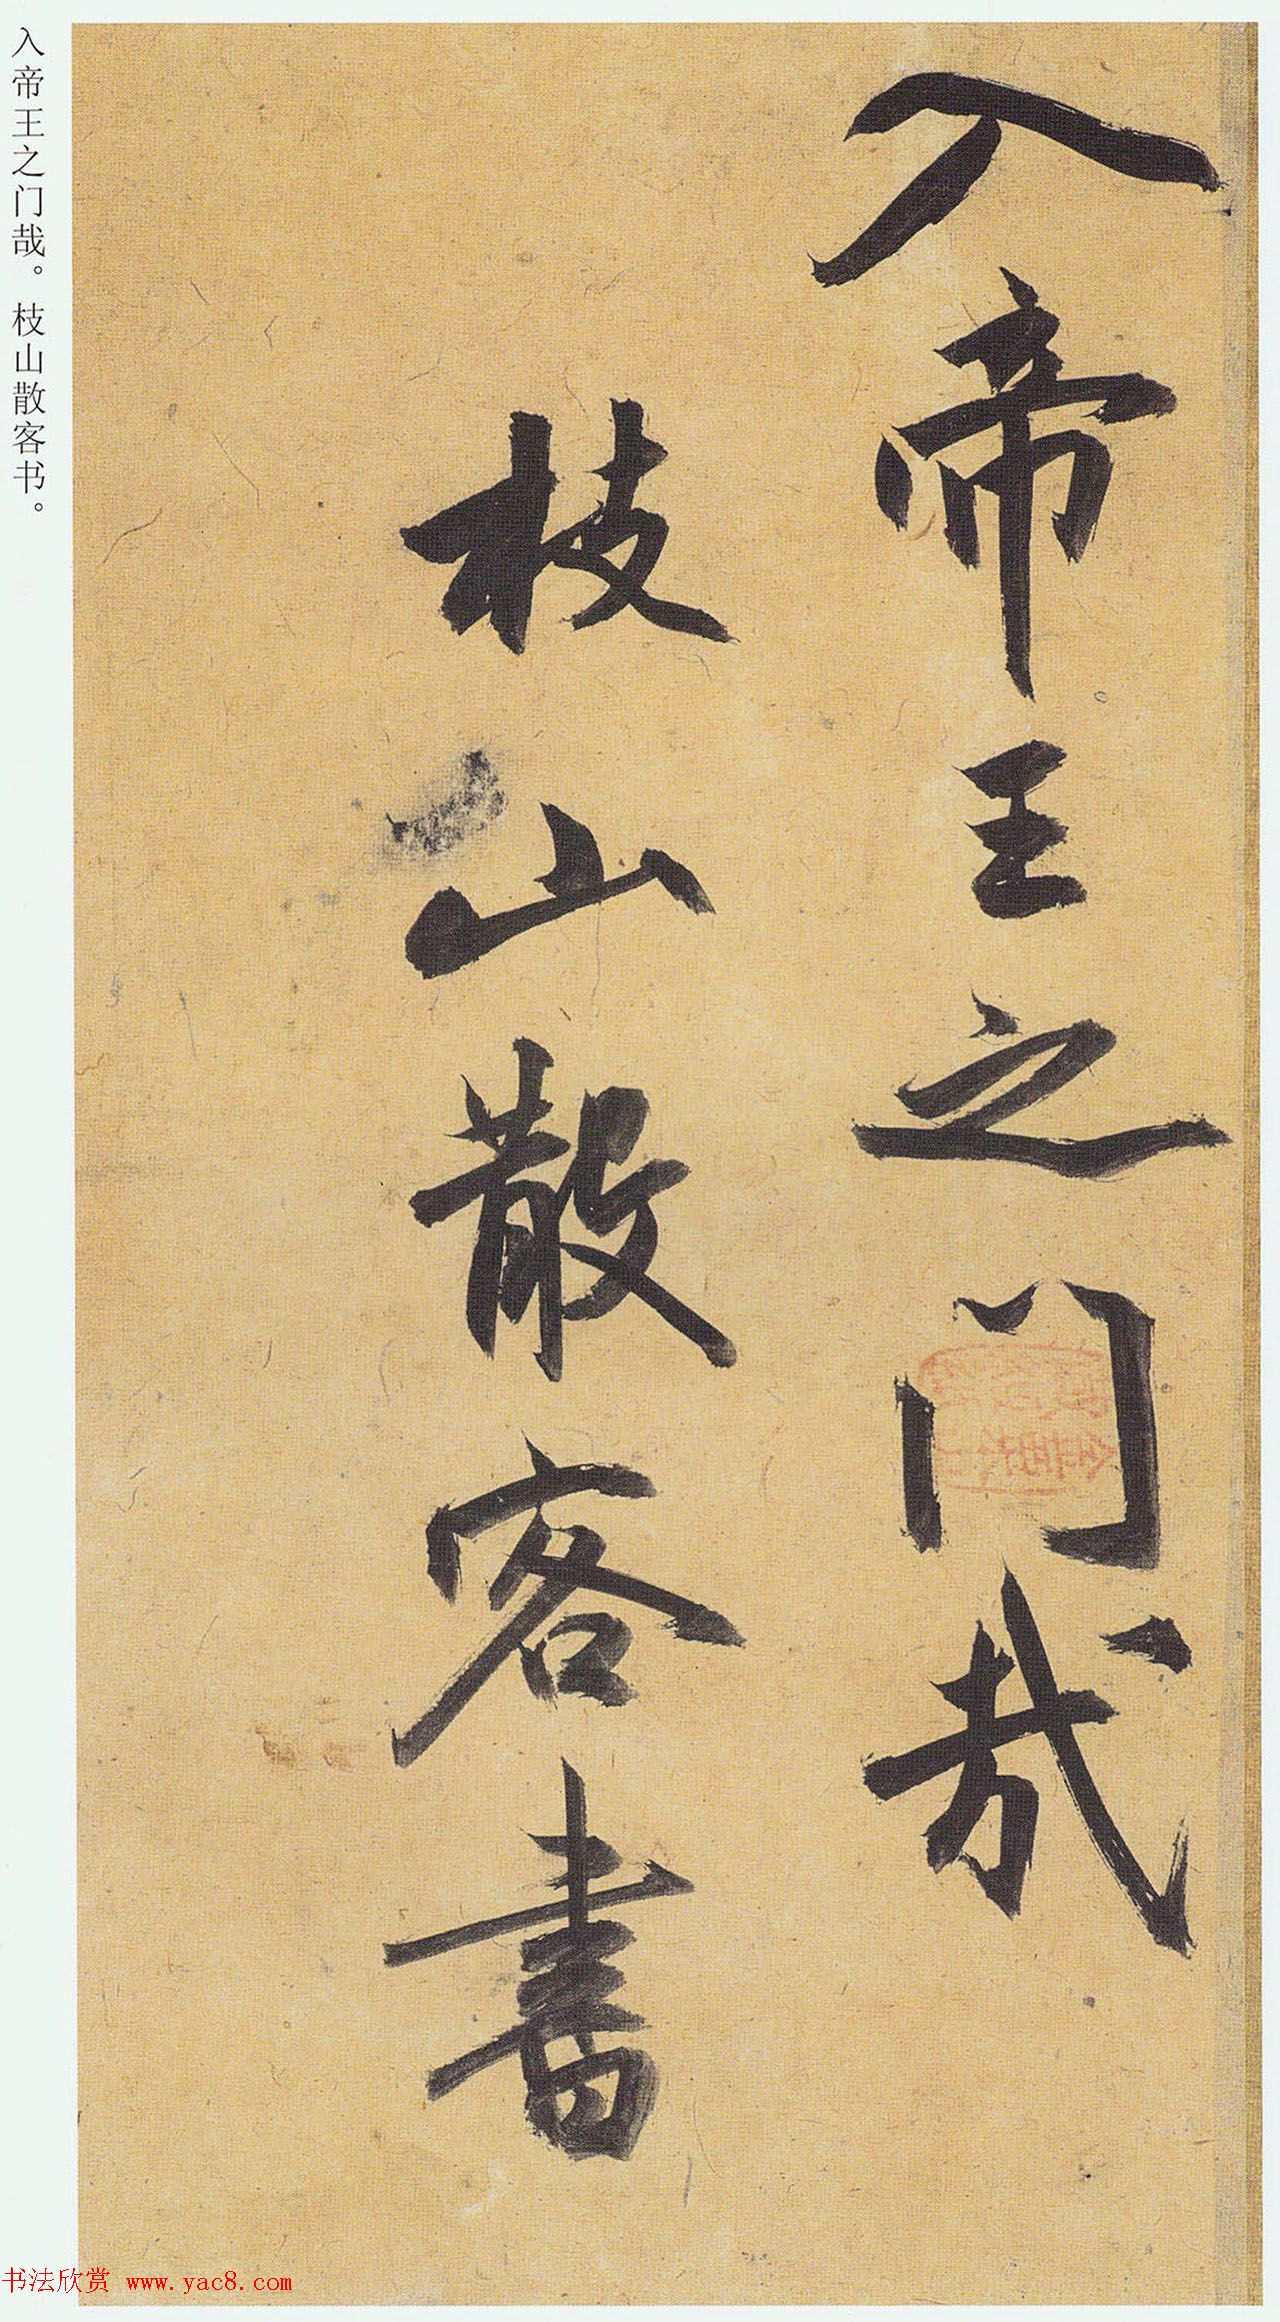 入帝王之门哉
枝山散客書
入帝王之门哉。枝山散客书。
书法欣赏 www.yac8.com